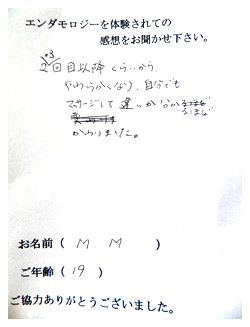 エンダモロジーを体験されての
感想をお聞かせ下さい。
2、3回目以降くらいから
やわらかくなり、自分でも
マッサージして違いが分かる
かわりました。
お名前（ M M ）
ご年齢（ 19 ）
ご協力ありがとうございました。